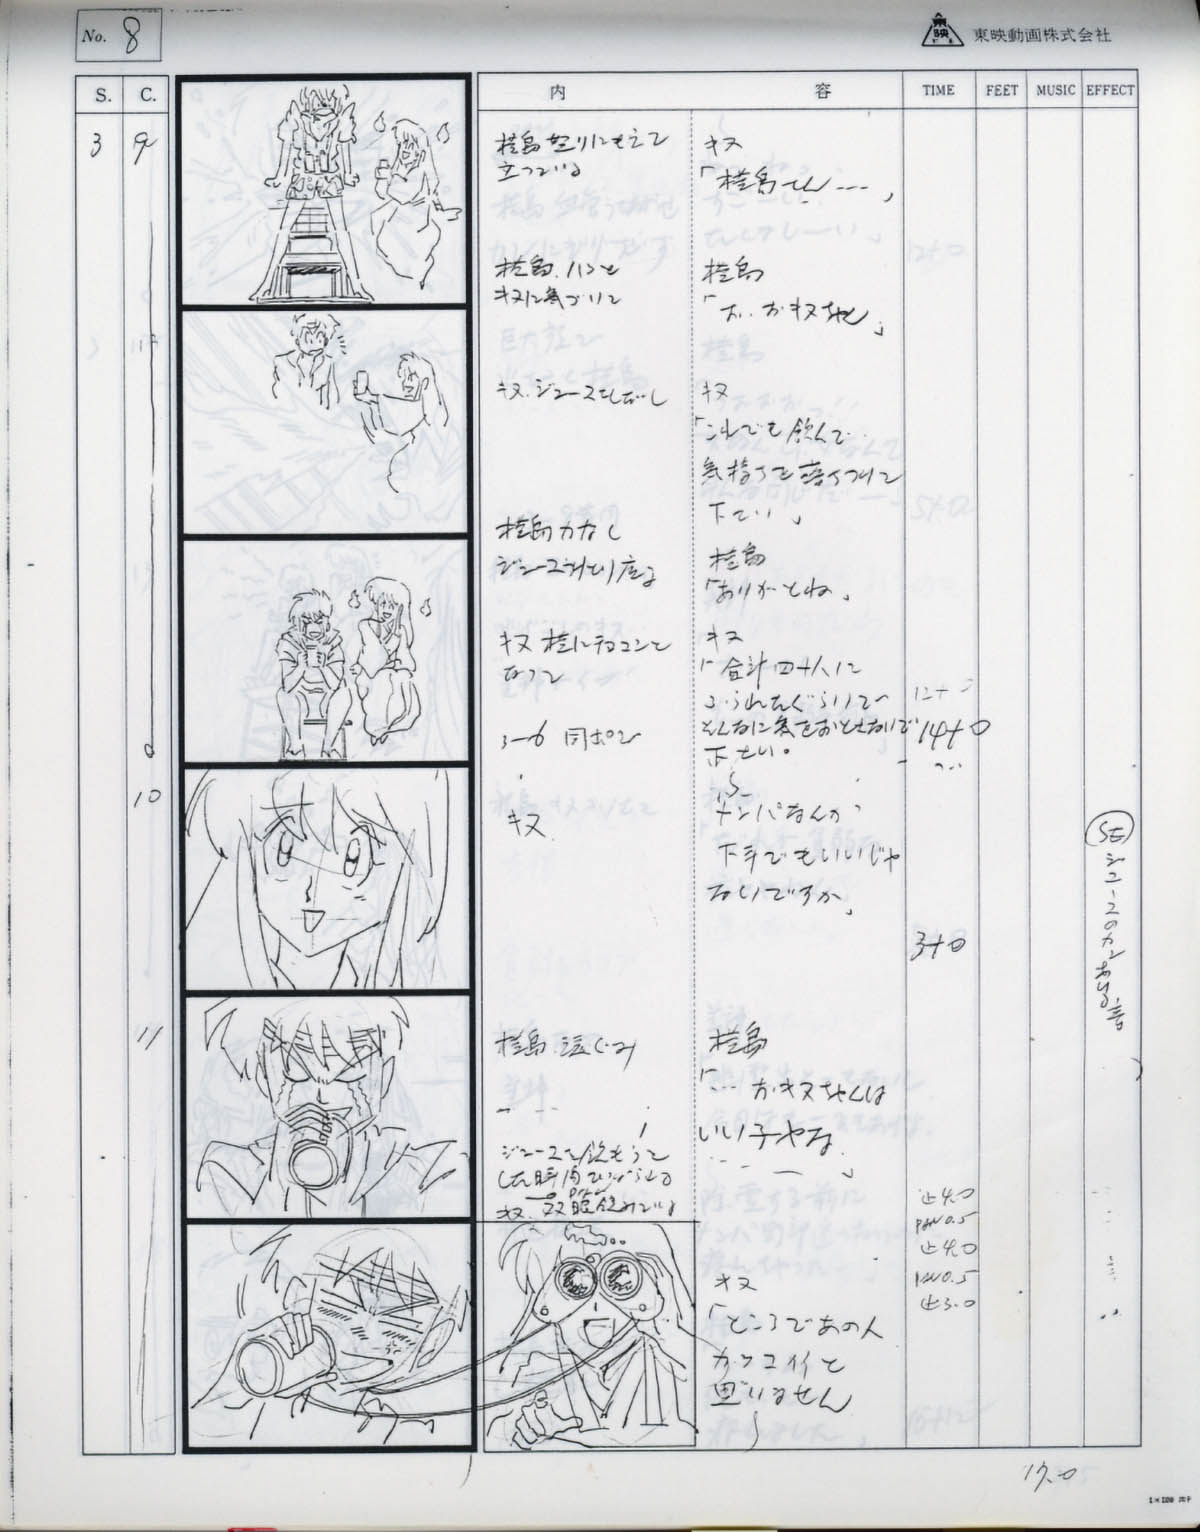 No. 8
東映
東映動画株式会社
S. C. 内 容 TIME FEET MUSIC EFFECT
3 9
桂島 怒りにもえて
立っている
キヌ
「桂島さん----」
桂島、ハッと
キヌに気づいて
桂島
「お、おキヌちゃん」
キヌ、ジュースをさしだし
キヌ
「これでも飲んで
気持ちを落ちつけて
下さい」
桂島力なく
ジュースうけとり座る
桂島
「ありがとね」
キヌ
「合計四十人に
ふられたぐらいで
そんなに気をおとさないで
下さい。
3-6 同ポジ
14+0
10
キヌ
ナンパなんか
下手でもいいじゃ
ないですか」
3+0
SE
11
桂島 涙ぐみ
桂島
「… おキヌちゃんは
いい子やな
ジュースを飲もうと
した時
キヌ、双眼
止4.0
PAN0.5
止4.0
PAN0.5
止3.0
キヌ
「ところであの人
カッコイイと
思いません
17.0